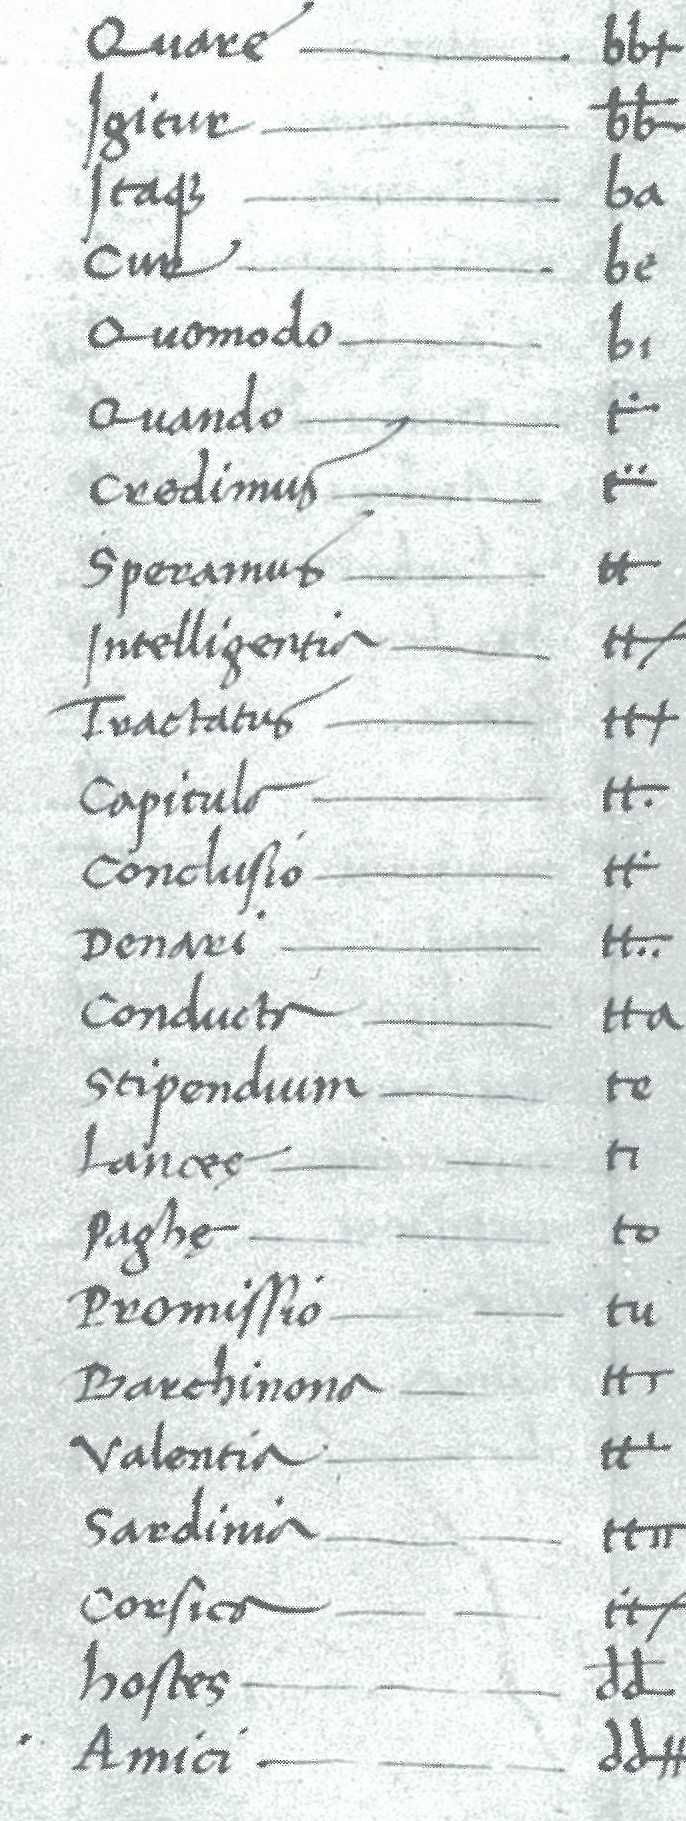 Quare bb+
Igitur bb
Itaq₃ ba
Cur be
Quomodo bi
Quando t
Credimus t
Speramus tt
Intelligentia tt/
Tractatus tt+
Capitulo tt.
Conclusio tt
Denari tt..
Conducta tta
Stipendium te
Lancee ti
Paghe to
Promissio tu
Barchinona tt
Valentia tt
Sardinia tt
Corsica tt/
hostes dd
Amici dd